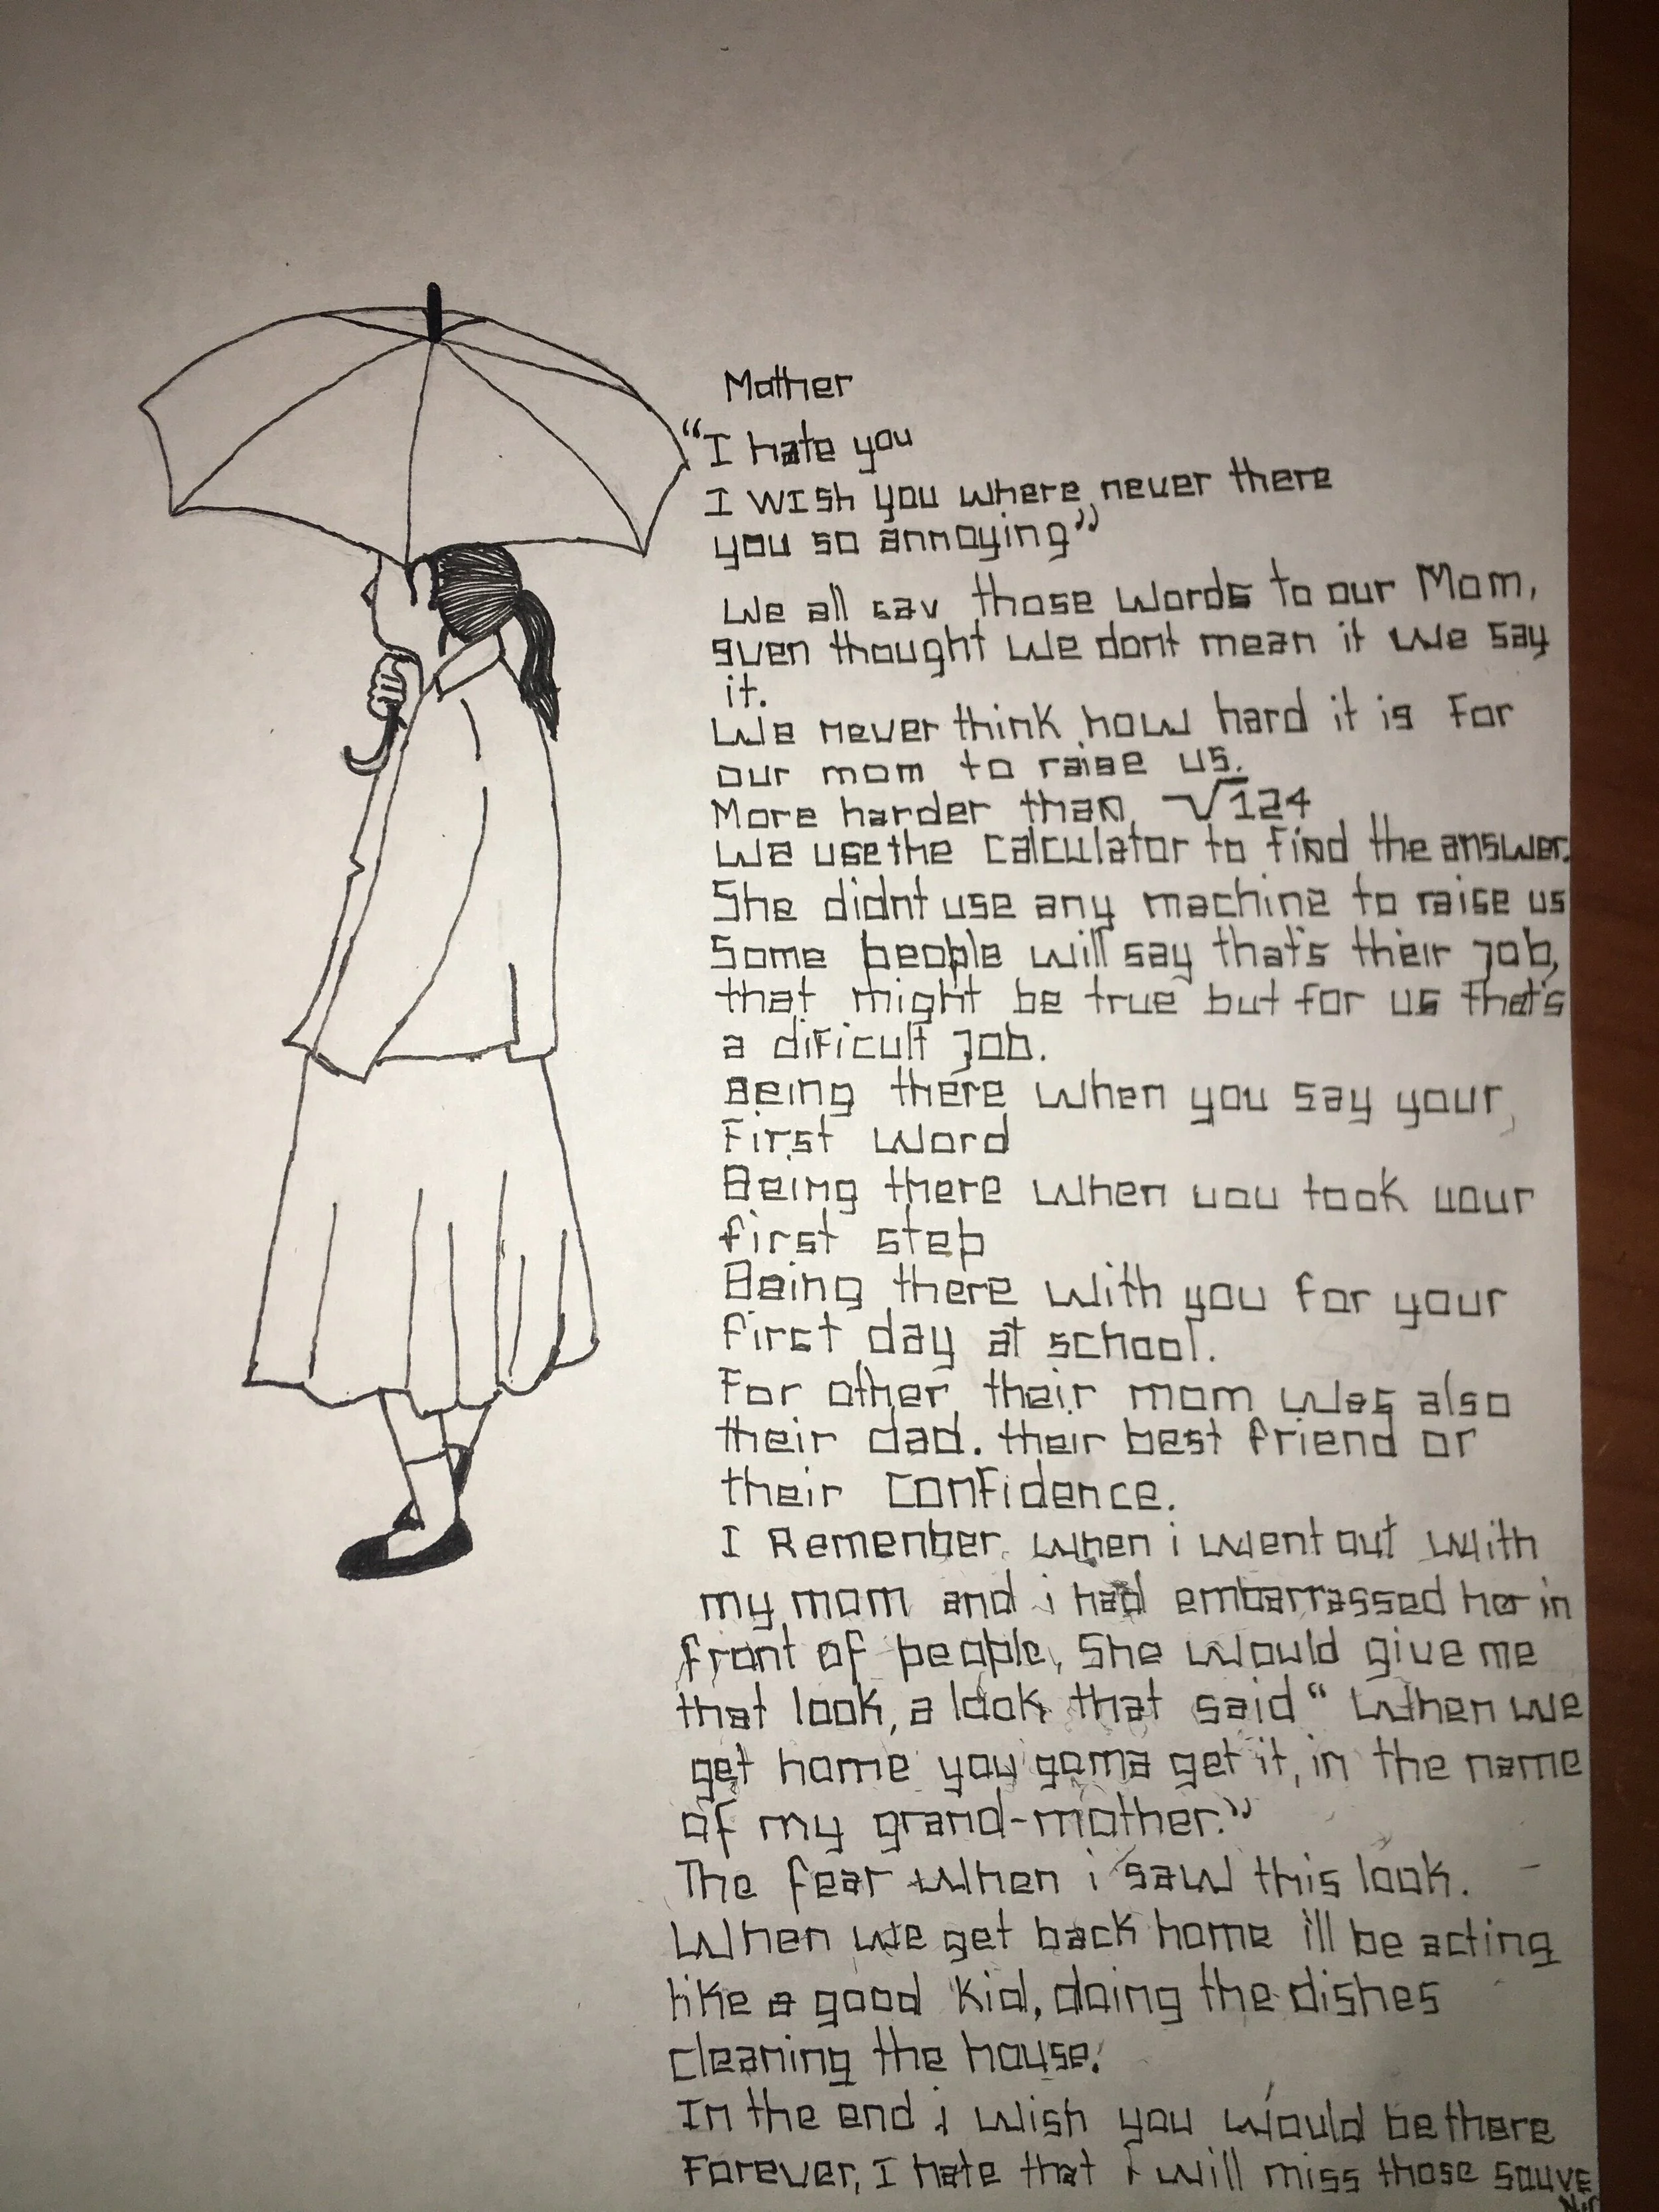 Mother
“I hate you
I wish you where never there
you so annoying”
We all say those words to our Mom,
even thought we dont mean it we say
it.
We never think how hard it is for
our mom to raise us.
More harder than √124
we use the calculator to find the answer.
She didnt use any machine to raise us
Some people will say that's their job,
that might be true but for us that's
a dificult job.
Being there when you say your
first word
Being there when you took your
first step
Being there with you for your
first day at school.
For other their mom was also
their dad. their best friend or
their confidence.
I Remenber when i went out with
my mom and i had embarrassed her in
front of people, She would give me
that look, a look that said “When we
get home you gonna get it, in the name
of my grand-mother.”
The fear when i saw this look.
When we get back home i'll be acting
like a good kid, doing the dishes
cleaning the house.
In the end i wish you would be there
Forever, I hate that I will miss those souve